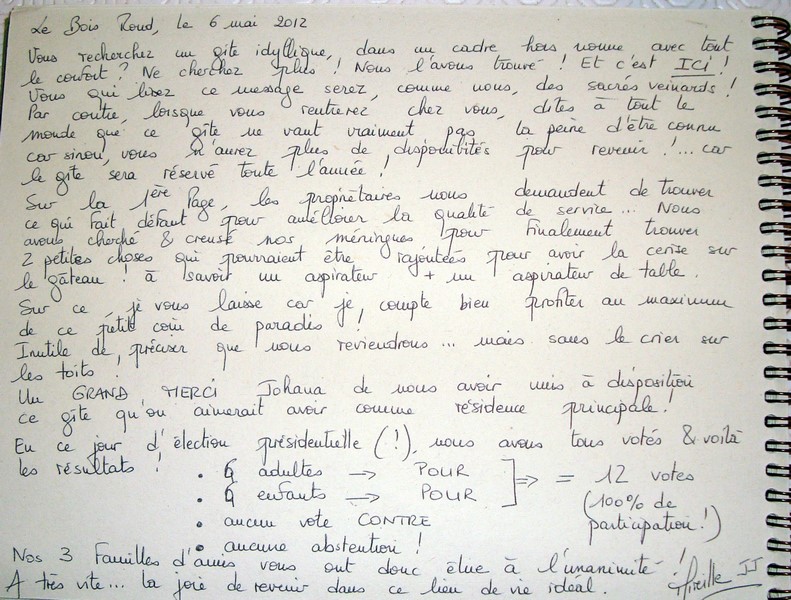 Le Bois Rond, le 6 mai 2012
Vous recherchez un gîte idyllique, dans un cadre hors norme avec tout
le confort ? Ne cherchez plus ! Nous l'avons trouvé ! Et c'est ICI !
Vous qui lisez ce message serez, comme nous, des sacrés veinards !
Par contre, lorsque vous rentrerez chez vous, dites à tout le
monde que ce gîte ne vaut vraiment pas la peine d'être connu
car sinon, vous n'aurez plus de disponibilités pour revenir !... car
le gîte sera réservé toute l'année !
Sur la 1ère Page, les propriétaires nous demandent de trouver
ce qui fait défaut pour améliorer la qualité de service... Nous
avons cherché & creusé nos méninges pour finalement trouver
2 petites choses qui pourraient être rajoutées pour avoir la cerise sur
le gâteau ! à savoir un aspirateur + un aspirateur de table.
Sur ce, je vous laisse car je compte bien profiter au maximum
de ce petit coin de paradis !
Inutile de préciser que nous reviendrons... mais sans le crier sur
les toits !
Un GRAND MERCI Johana de nous avoir mis à disposition
ce gîte qu'on aimerait avoir comme résidence principale !
En ce jour d'élection présidentielle (!), nous avons tous votés & voilà
les résultats ! • 6 adultes → POUR ] ⇒ = 12 votes
• 6 enfants → POUR (100% de
• aucun vote CONTRE participation !)
• aucune abstention !
Nos 3 Familles d'amis vous ont donc élue à l'unanimité !
A très vite... la joie de revenir dans ce lieu de vie idéal. Mireille